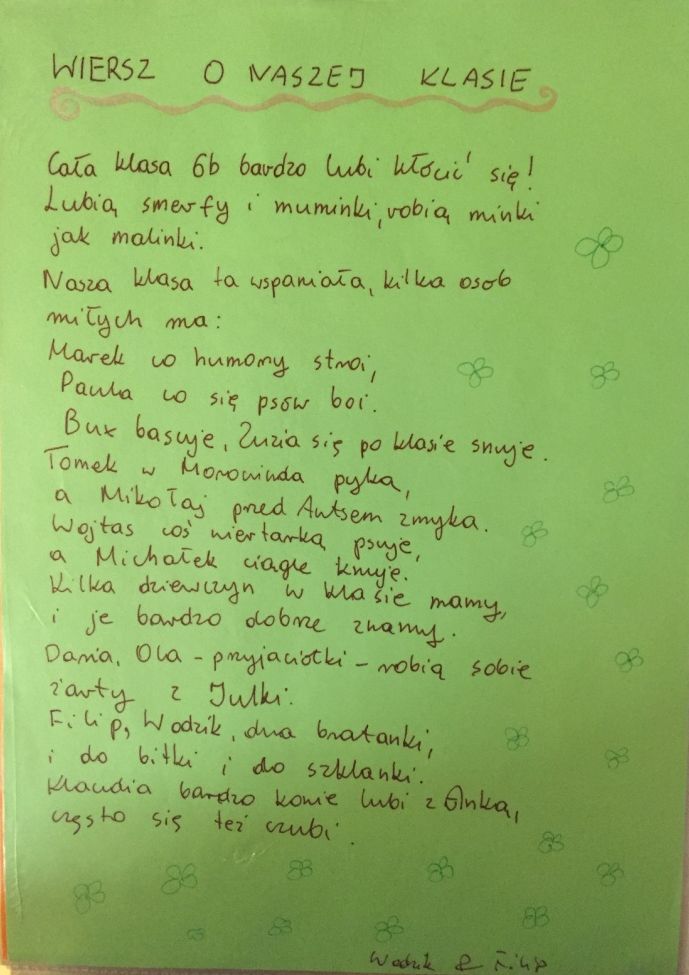 WIERSZ O NASZEJ KLASIE
Cała klasa 6b bardzo lubi kłócić się!
Lubią smerfy i muminki, robią minki
jak malinki.
Nasza klasa ta wspaniała, kilka osob
miłych ma:
Marek co humory stroi,
Paula co się psów boi.
Bux basuje, Zuzia się po klasie snuje.
Tomek w Morowinda pyka,
a Mikołaj przed Autsem zmyka.
Wojtas coś wiertarką psuje,
a Michałek ciągle knuje.
Kilka dziewczyn w klasie mamy,
i je bardzo dobrze znamy.
Daria, Ola - przyjaciółki - robią sobie
żarty z Julki.
Filip, Wodzik, dwa bratanki,
i do bitki i do szklanki.
Klaudia bardzo konie lubi z Anką,
często się też czubi.
Wodzik & Filip